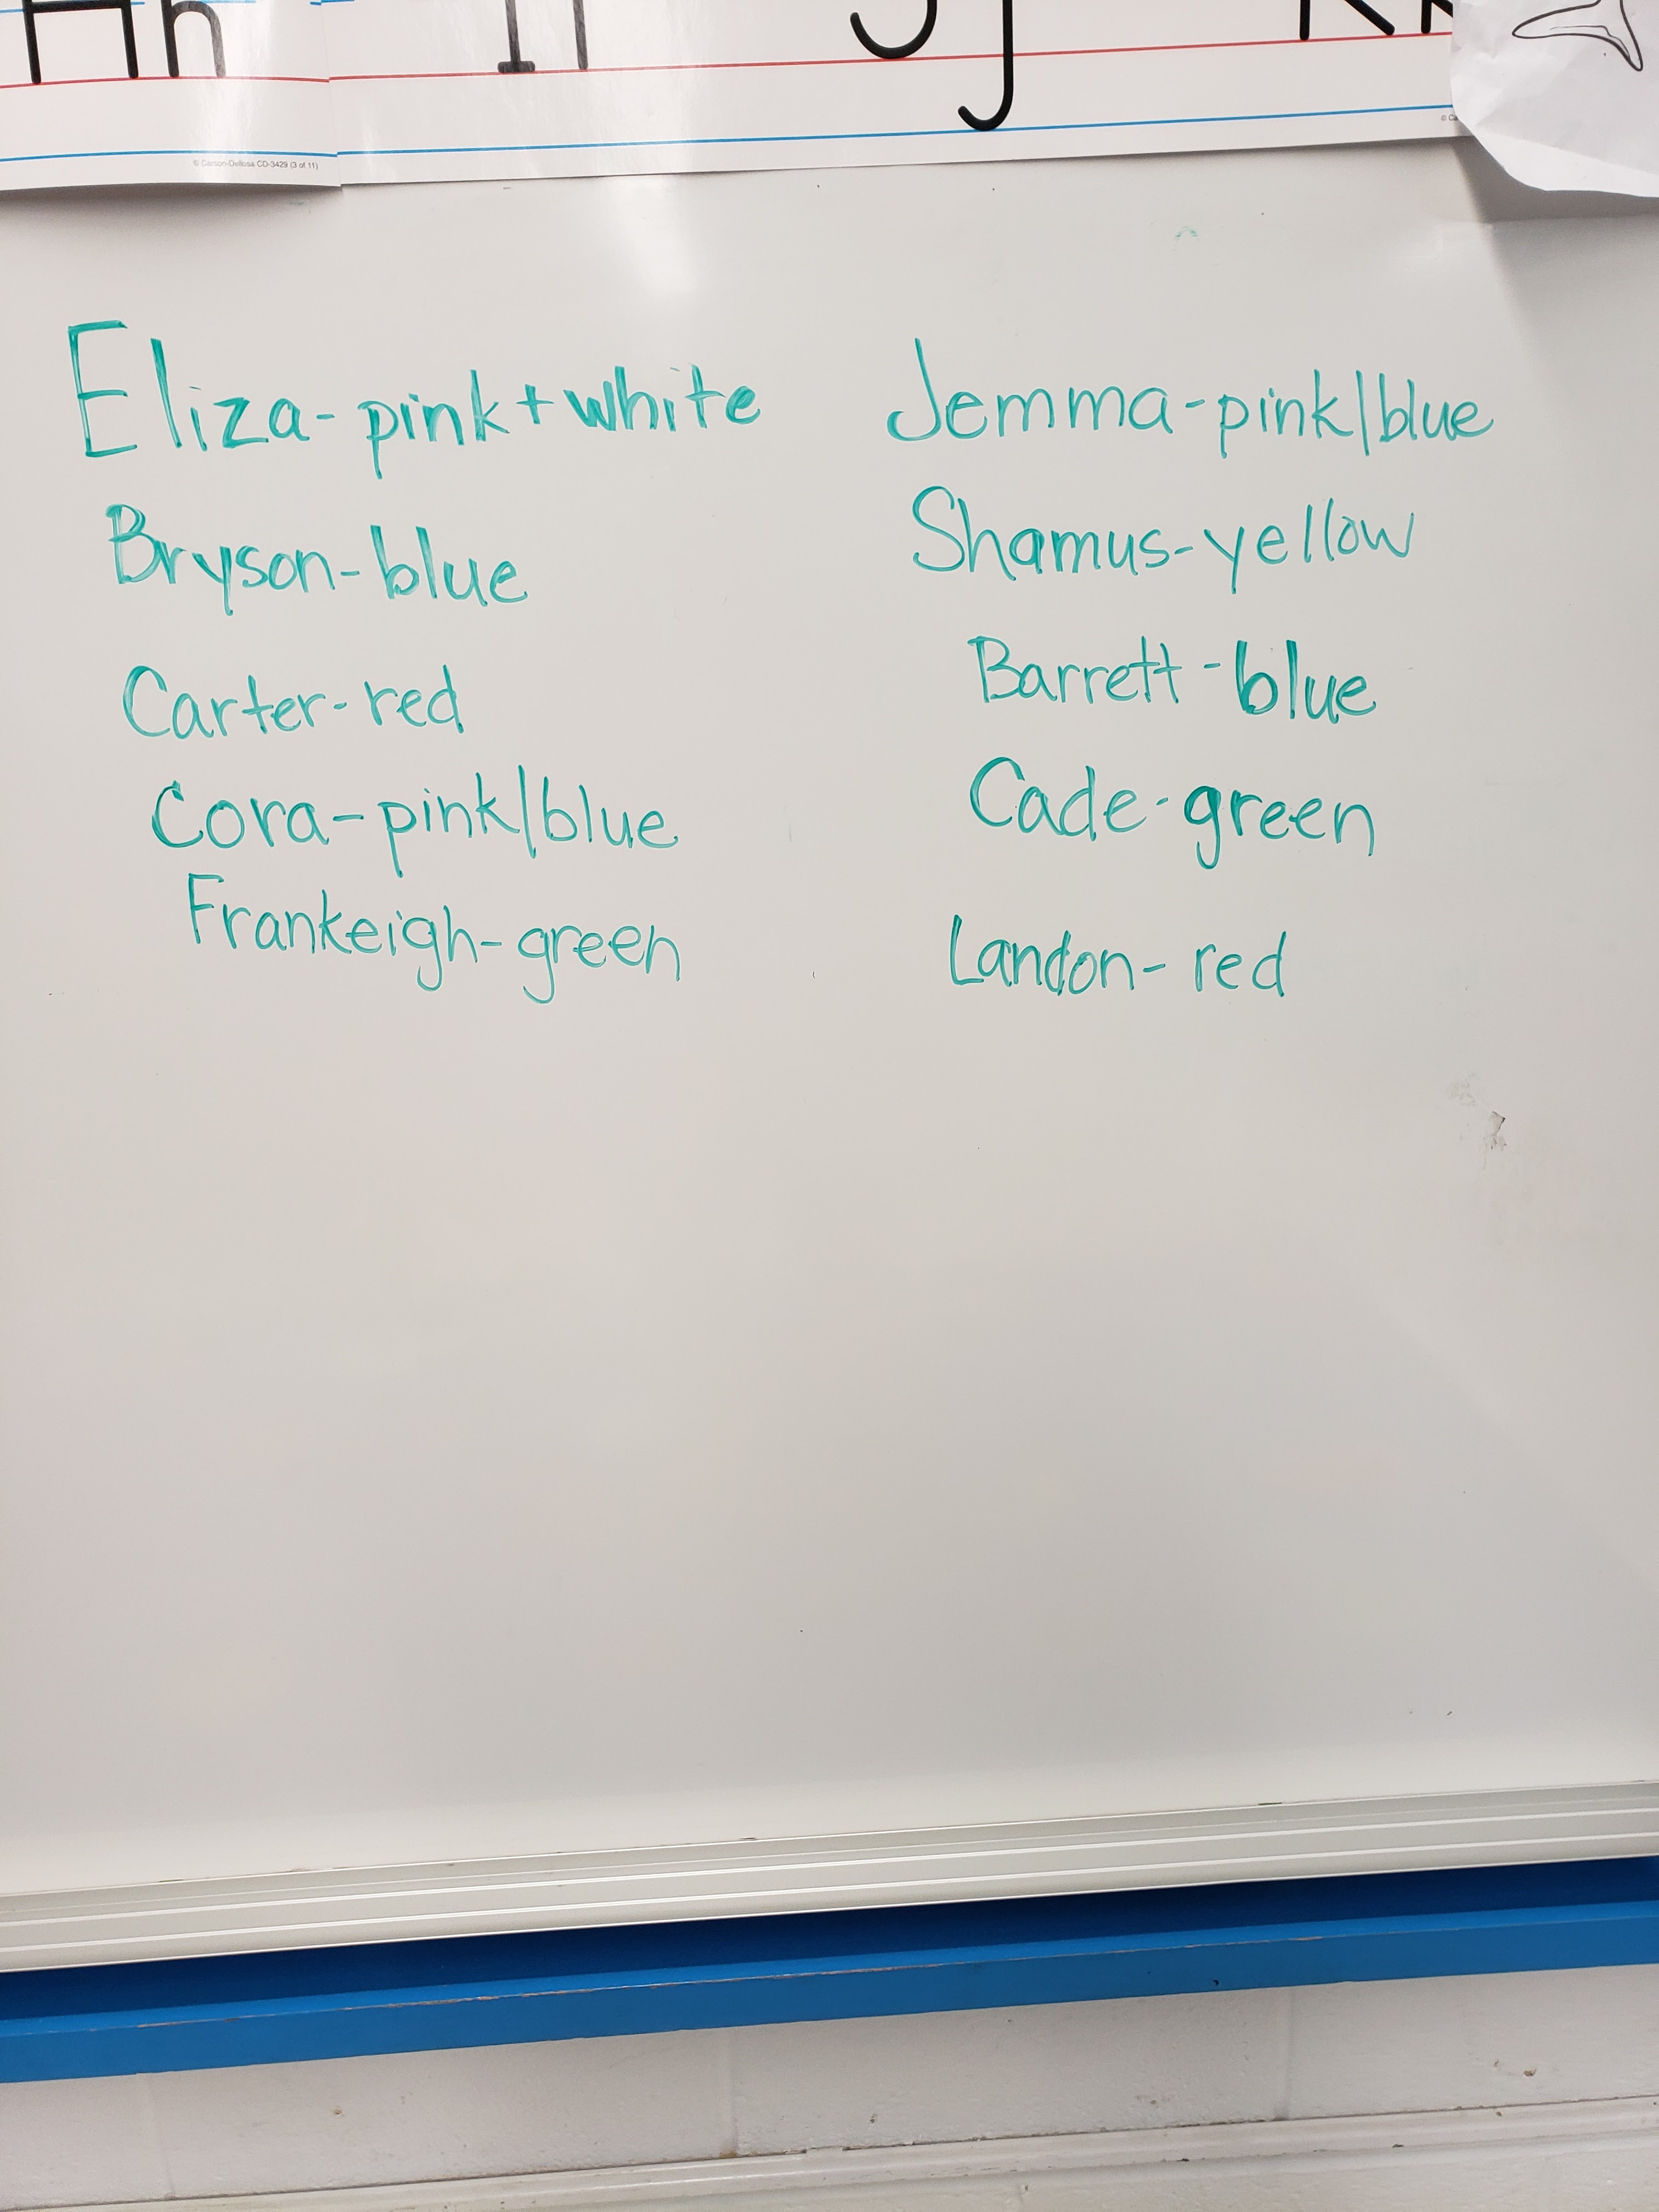 Hh Ii Jj Kk
© Carson-Dellosa CD-3429 (3 of 11)
Eliza-pink+white
Bryson-blue
Carter-red
Cora-pink/blue
Frankeigh-green
Jemma-pink/blue
Shamus-yellow
Barrett-blue
Cade-green
Landon-red